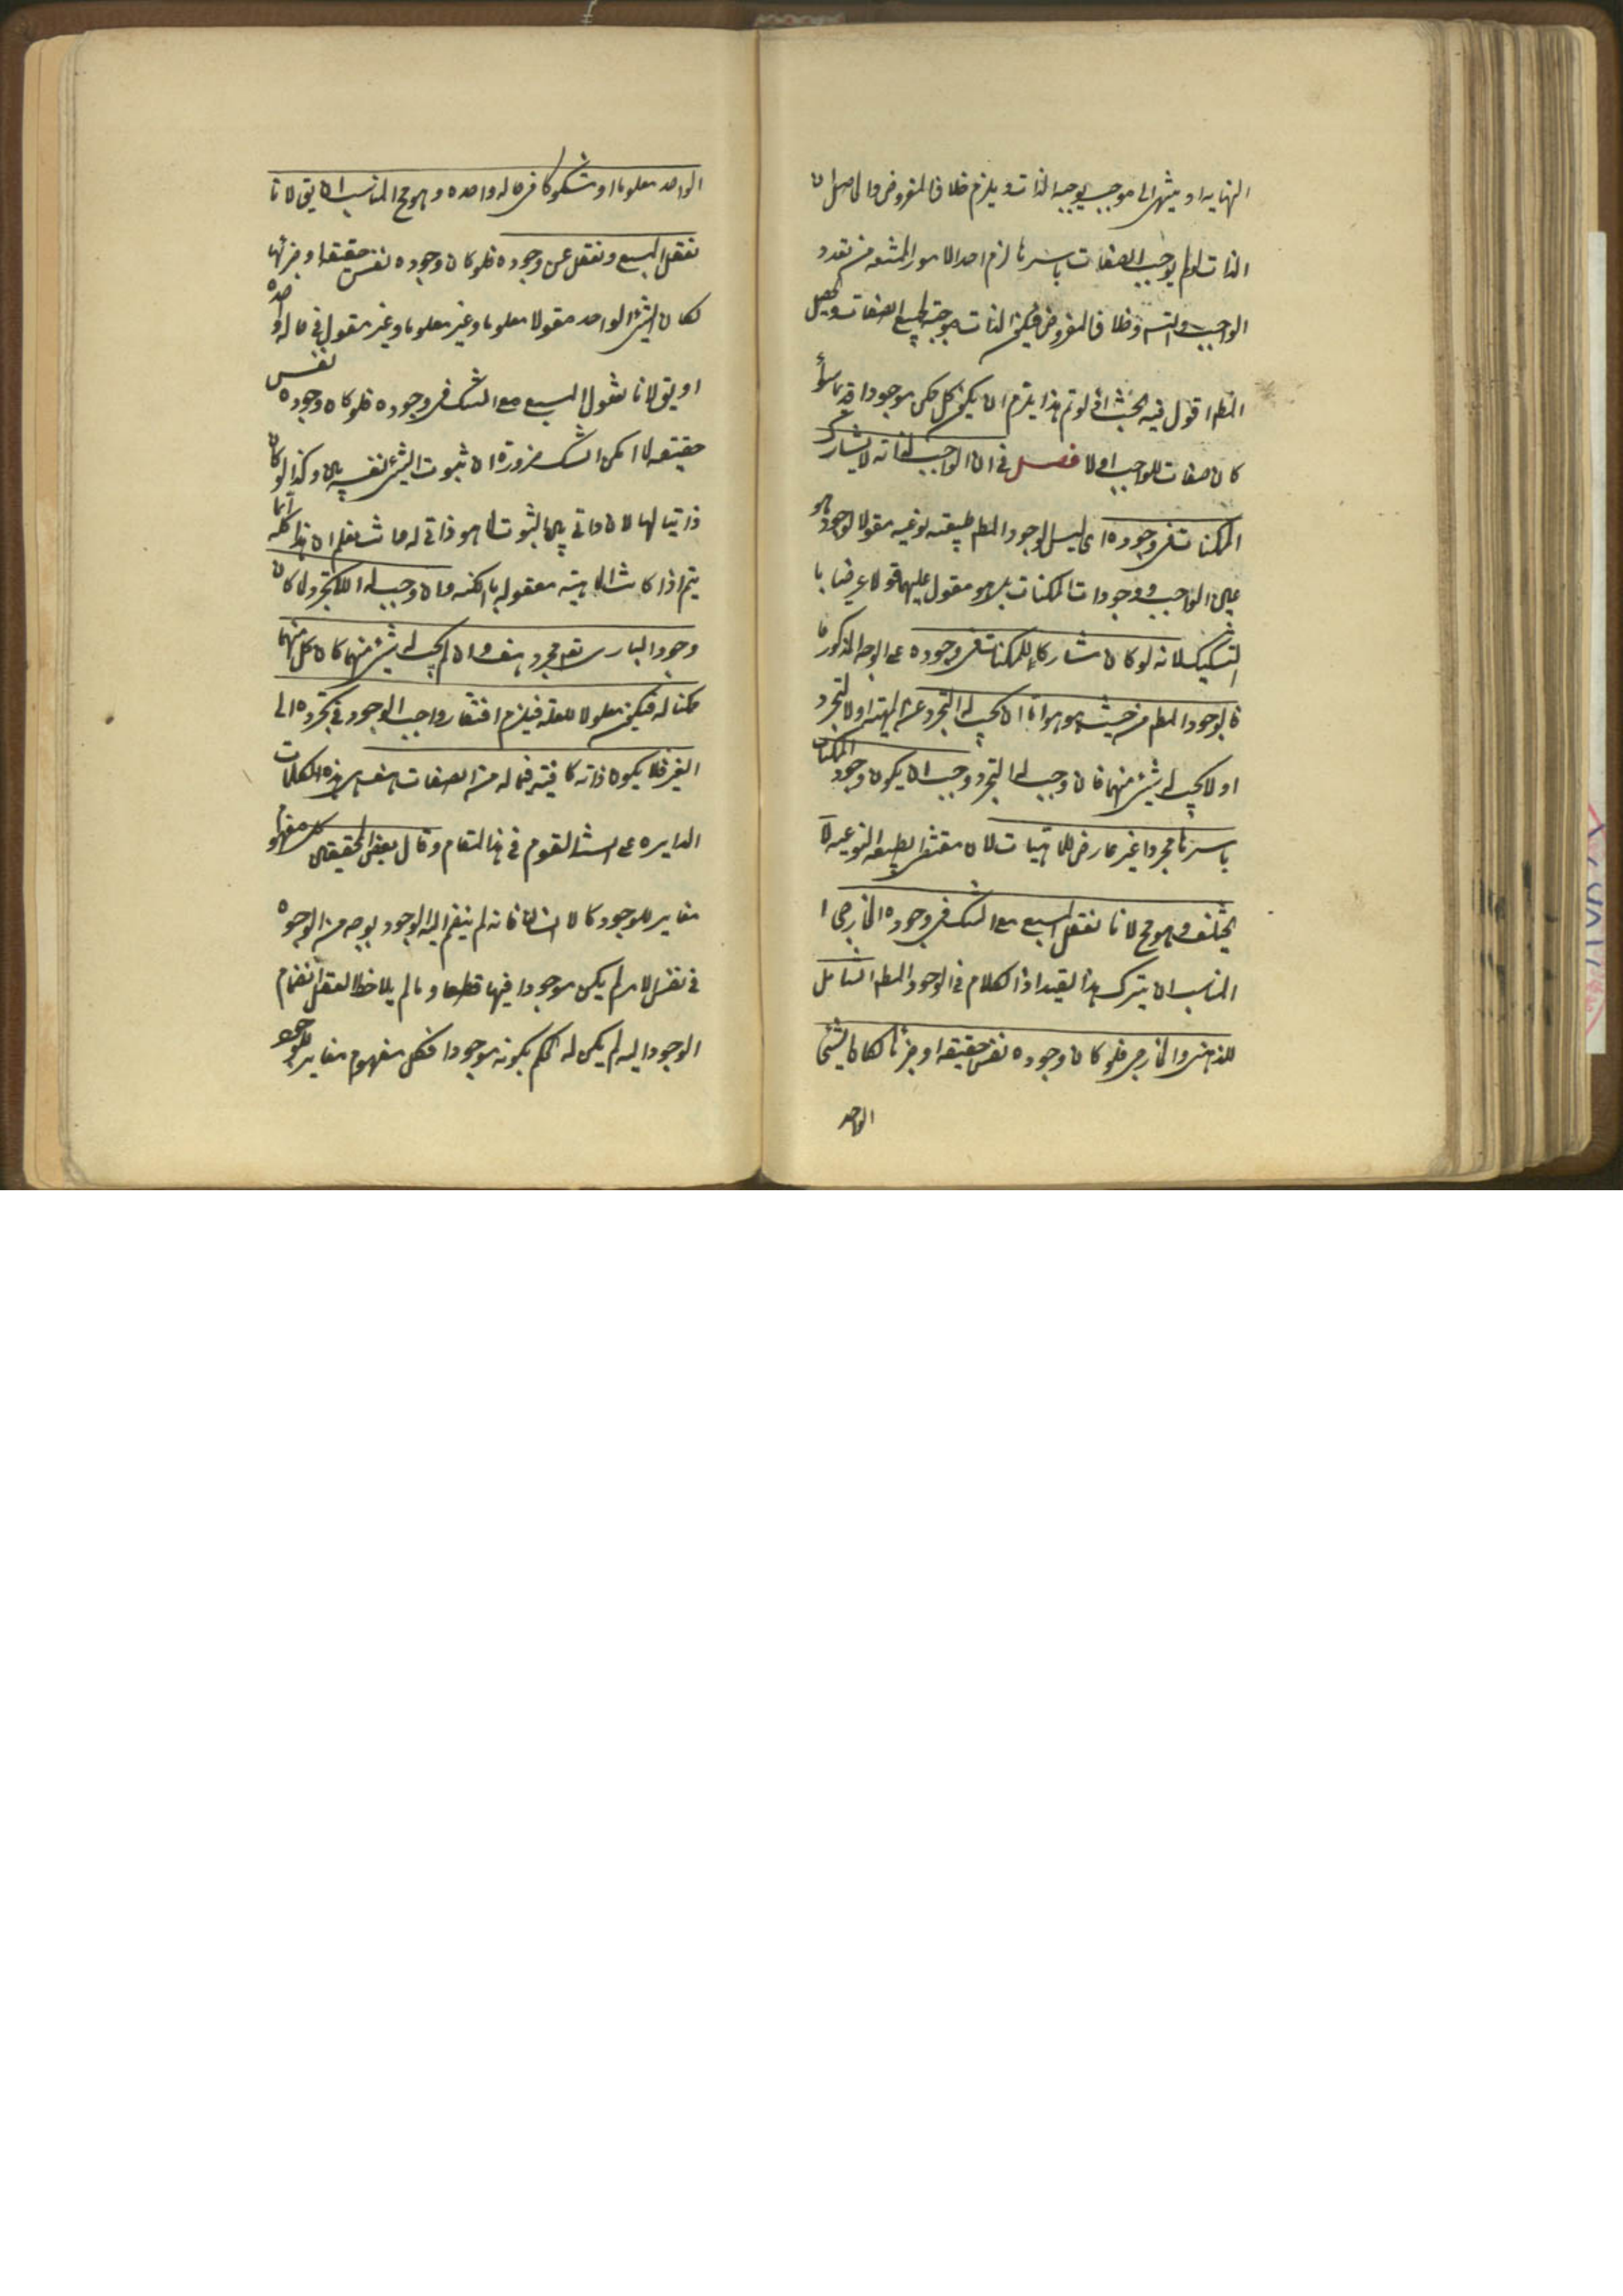 النهايه او ينتهى الى موجب يوجبه الذات ويلزم خلاف المفروض والحاصل ان
الذات لو لم يوجب الصفات باسرها لزم احد الامور الممتنعه من تعدد
الواجب والتسه وخلاف المفروض فيكون الذات موجبة لجميع الصفات ويحصل
المطم اقول فيه بحث اذ لو تم هذا يلزم ان يكون كل ممكن موجودا قديما سواء
كان صفات للواجب او لا فصل فى ان الواجب لذاته لا يشارك
الممكنات فى وجوده اى ليس الوجود المطم طبيعة نوعيه مقولا لوجود هو
عين الواجب ووجودات الممكنات بل هو مقول عليها قولا عرضيا با
لتشكيك لانه لو كان مشاركا للممكنات فى وجوده على الوجه المذكور
فالوجود المطم من حيث هو هو اما ان يجب له التجرد عن المهية او لا تجرد
او لا يجب له شئ منهما فان وجب له التجرد وجب ان يكون وجود الممكنات
باسرها مجردا غير عارض للماهيات لان مقتضى الطبيعه النوعيه لا
يختلف وهو مح لانا نعقل المسبع مع الشك فى وجوده الخارجى ا
لمناسب ان يترك هذا القيد اذ الكلام فى الوجود المطم الشامل
للذهنى والخارجى فلو كان وجوده نفس حقيقه او جزئها لكان الشئ
الواحد
الواحد معلوما او مشكوكا فى حاله واحده وهو مح المناسب ان يق لانا
نعقل المسبع ونغفل عن وجوده فلو كان وجوده نفس حقيقه او جزئها
لكان الشئ الواحد مقولا معلوما وغير معلوما وغير مقول فى حاله واحده
او يق لانا نقول المسبع مع الشك فى وجوده فلو كان وجوده نفس
حقيقه لما امكن الشك ضرورة ان ثبوت الشئ لنفسه بين وكذا لو كان
ذاتيا لها لان ذاتى بين الثبوت لما هو ذاتى له فاعلم ان هذا كله انما
يتم اذا كانت الماهيته معقوله بالكنه وان وجب له اللاتجرد لما كان
وجود البارى تعم مجرد هف وان لم يجب له شئ منهما كان كل منهما
ممكنا له فيكون معلولا لعله فيلزم افتقار واجب الوجود فى تجرده الى
الغير فلا يكون ذاته كافيته فيما له من الصفات هف هى هذه الكلمات
الدايره على السنة القوم فى هذا المقام وقال بعض المحققين كل مفهوم
مغاير للوجود كالانسان فانه لم ينضم اليه الوجود بوجه من الوجوه
فى نفس الامر لم يكن موجودا فيها قطعا وما لم يلاحظ العقل انضمام
الوجود اليه لم يكن له الحكم بكونه موجودا فكل مفهوم مغاير للوجود